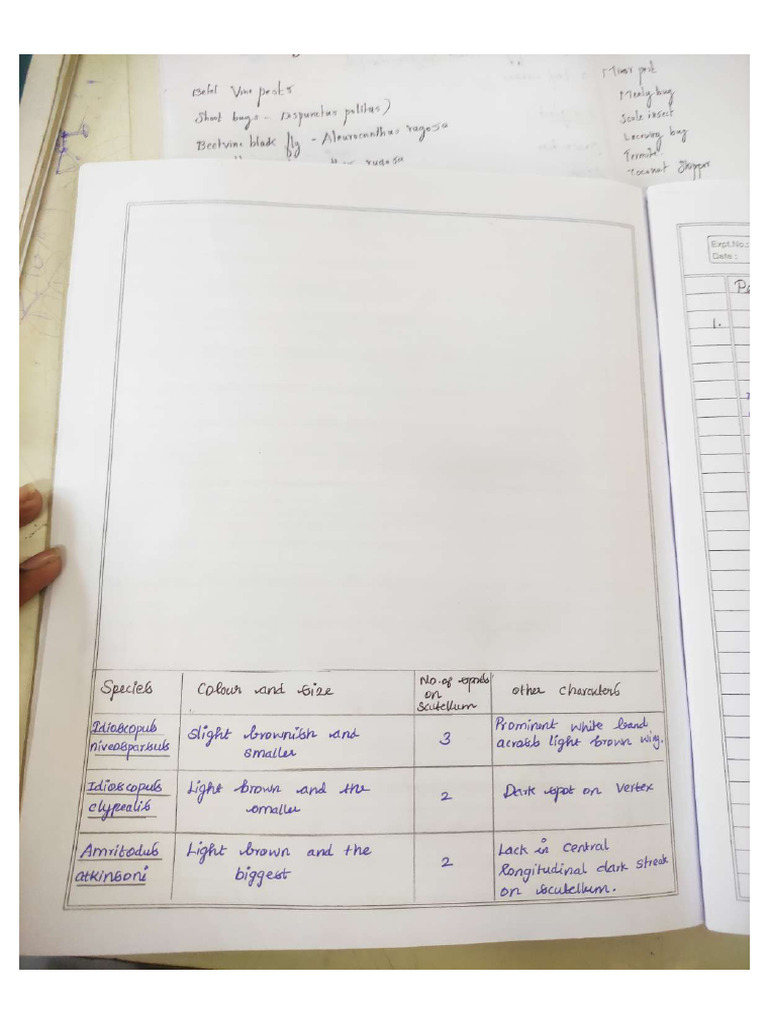 Betel Vine pests
Shoot bugs - Disphinctus politus)
Beetvine black fly - Aleurocanthus rugosa
rugosa
Minor pest
Mealy bug
Scale insect
Lacewing bug
Termite.
Coconut Skipper
Expt.No.:
Date :
1.
Species
Colour and Size
No. of spots
on
scutellum
other characters
Idioscopus
niveosparsus
Slight brownish and
smaller
3
Prominent white band
across light brown wing.
Idioscopus
clypealis
Light brown and the
smaller
2
Dark spot on vertex
Amritodus
atkinsoni
Light brown and the
biggest
2
Lack in central
longitudinal dark streak
on scutellum.